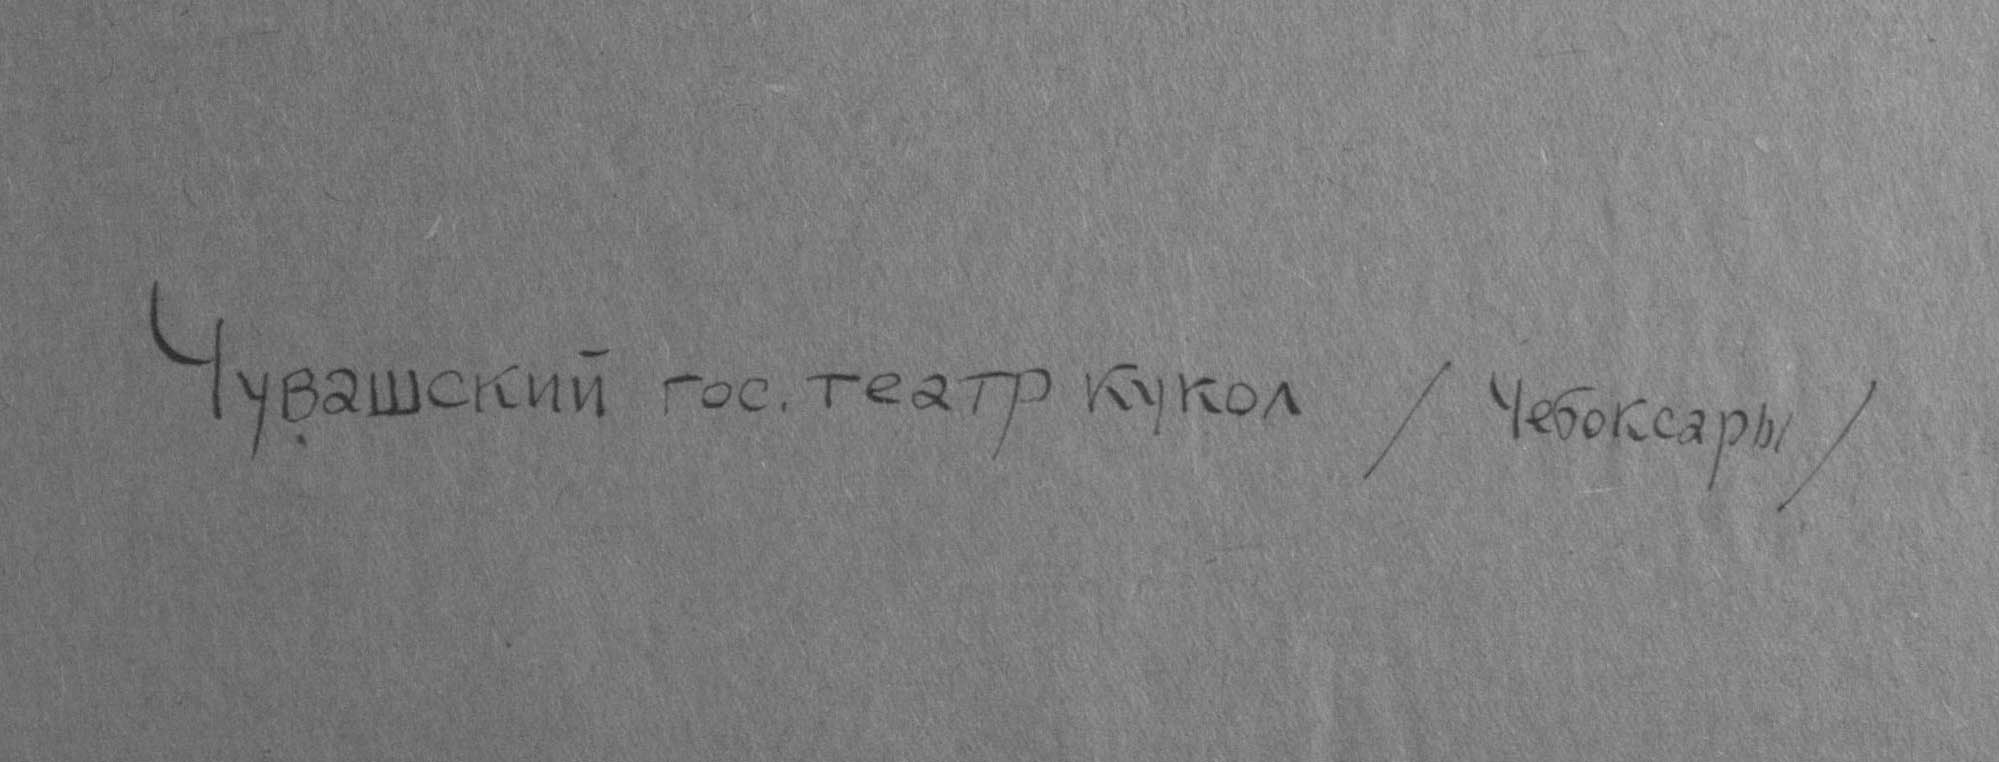 Чувашский гос. театр кукол / Чебоксары /